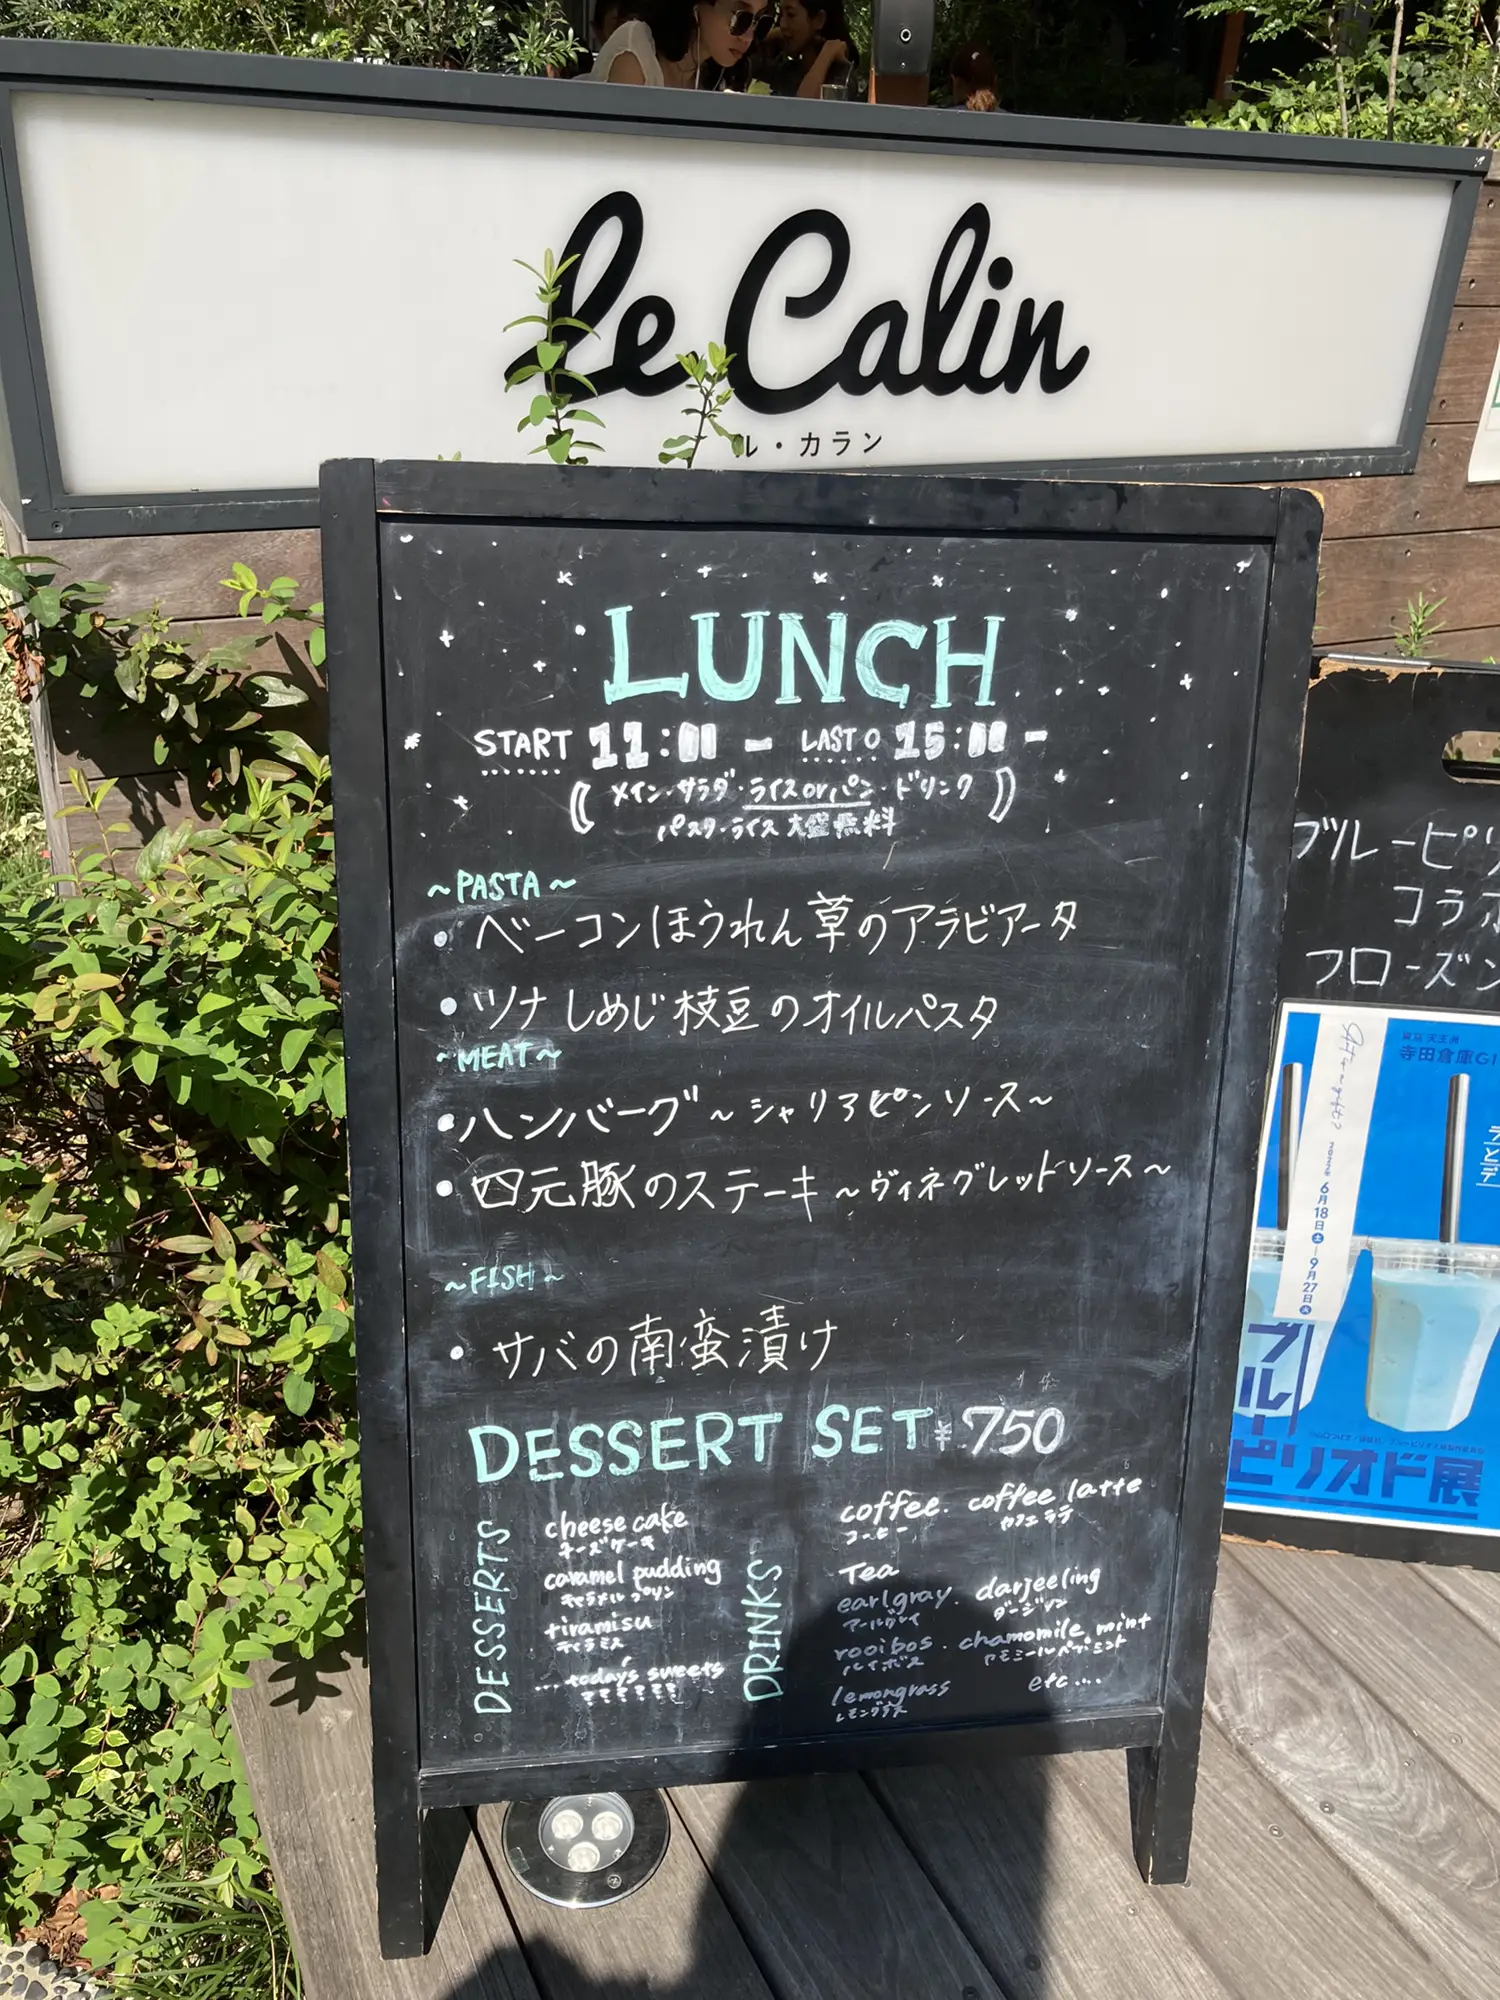 le Calin
ル・カラン
LUNCH
START 11:00 - LAST O 15:00 -
( メイン・サラダ・ライスorパン・ドリンク )
パスタ・ライス 大盛無料
~PASTA~
・ベーコンほうれん草のアラビアータ
・ツナしめじ枝豆のオイルパスタ
~MEAT~
・ハンバーグ~シャリアピンソース~
・四元豚のステーキ~ヴィネグレットソース~
~FISH~
・サバの南蛮漬け
DESSERT SET ¥750
DESSERTS
cheese cake
チーズケーキ
caramel pudding
キャラメルプリン
tiramisu
ティラミス
... today's sweets
DRINKS
coffee. coffee latte
コーヒー カフェラテ
Tea
earlgray. darjeeling
アールグレイ ダージリン
rooibos. chamomile mint
ルイボス
lemongrass etc....
レモングラス
ブルーピリ
コラボ
フローズン
東京 天王洲
寺田倉庫G1
2022年 6月18日土—9月27日火
ブルーピリオド展